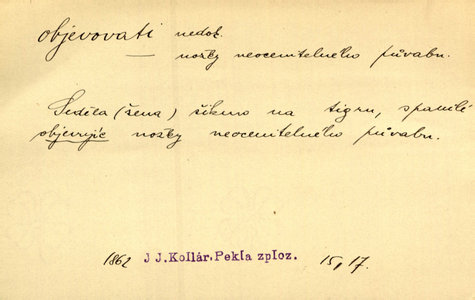 objevovati nedok.
— nožky neocenitelného půvabu.
Seděla (žena) šikmo na tigru, spanile
objevujíc nožky neocenitelného půvabu.
1862 J J. Kollár. Pekla zploz. 15, 17.